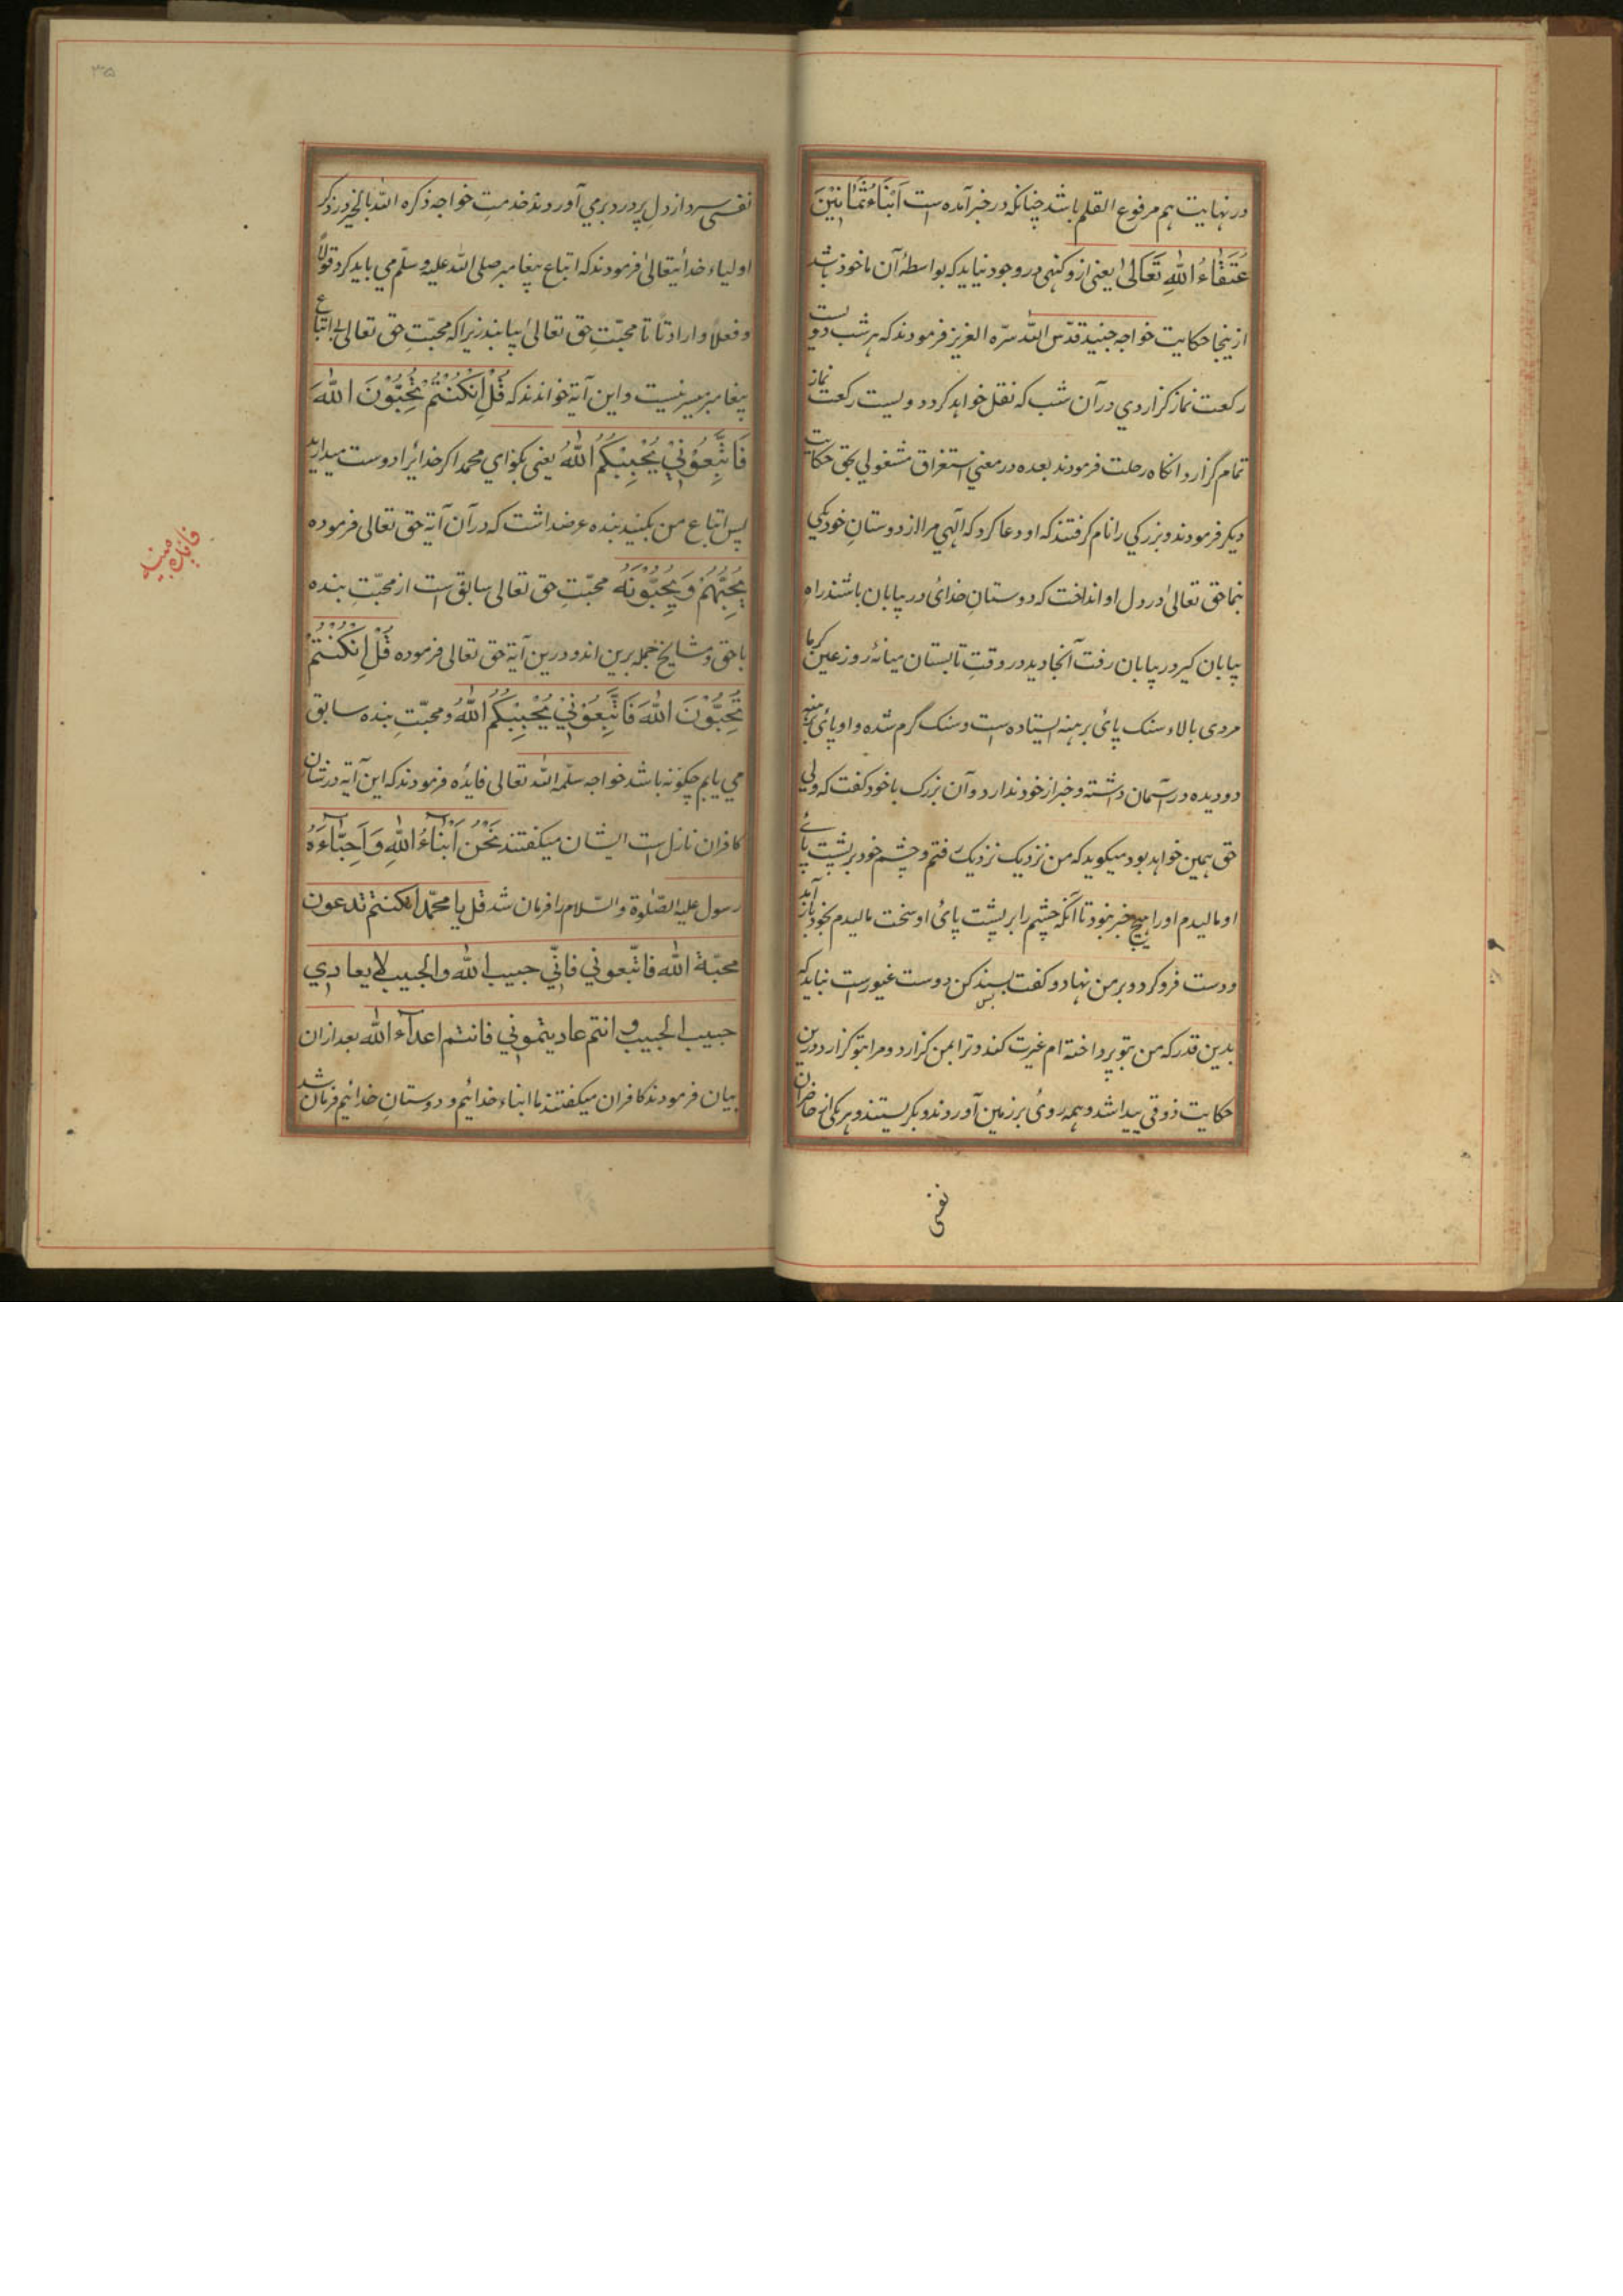 در نهایت هم مرفوع القلم باشد چنانکه در خبر آمده است اَبْنَاءُ ثَمَانِیْنَ
عُتَقَاءُ اللّٰهِ تَعَالیٰ یعنی ازو کنهی در وجود نیاید که بواسطهٔ آن ماخوذ باشد
ازینجا حکایت خواجه جنید قدّس اللّٰه سرّه العزیز فرمودند که هر شب دویست
رکعت نماز گزاردی در آن شب که نقل خواهد کرد دویست رکعت نماز
تمام گزارد انکاه رحلت فرمودند بعده در معنی استغراق مشغولی بحق حکایت
دیکر فرمودند و بزرکی را نام کرفتند که او دعا کرد که آلهی مرا از دوستانِ خود یکی
بنما حق تعالیٰ در دل او انداخت که دوستانِ خدای در بیابان باشند راهِ
بیابان کیر در بیابان رفت آنجا دید در وقتِ تابستان میانهٔ روز عین کرما
مردی بالاء سنک پائ برهنه ایستاده است و سنک گرم شده و او پائ برهنه
دو دیده در آسمان داشته و خبر از خود ندارد و آن بزرک با خود کفت که ولی
حق همین خواهد بود میکوید که من نزدیک نزدیک رفتم و چشم خود بر پشت پائے
او مالیدم او را هیچ خبر نبود تا آنکه چشم را بر پشت پائ او سخت مالیدم بخود باز آمد
و دست فرو کرد و بر من نهاد و کفت بس پسند کن دوست غیور است نباید که
بدین قدر که من بتو پرداخته ام غیرت کند و ترا بمن گزارد و مرا بتو گزارد درین
حکایت ذوقی پیدا شد و همه روئ بر زمین آوردند و بکریستند و هر یکی از حاضران
نفسی
۳۵
نفسی سرد از دلِ پردرد برمی آوردند خدمتِ خواجه ذکره اللّٰه بالخیر در ذکر
اولیاء خدایتعالیٰ فرمودند که اتباع پیغامبر صلی اللّٰه علیه وسلّم می باید کرد قولاً
و فعلاً و ارادتاً تا محبّتِ حق تعالیٰ بیابند زیرا که محبّتِ حق تعالی بی اتباع
پیغامبر میسر نیست و این آیة خواندند که قُلْ اِنْکُنْتُمْ تُحِبُّوْنَ اللّٰهَ
فَاتَّبِعُوْنِیْ یُحْبِبْکُمُ اللّٰهُ یعنی بکو ای محمد اکر خدایرا دوست میدارید
پس اتباع من بکنید بنده عرضداشت که در آن آیة حق تعالی فرموده
یُحِبُّهُمْ وَ یُحِبُّوْنَهُ محبّتِ حق تعالی سابق است از محبّتِ بنده
با حق و مشایخ جمله برین اند و درین آیة حق تعالی فرموده قُلْ اِنْکُنْتُمْ
تُحِبُّوْنَ اللّٰهَ فَاتَّبِعُوْنِیْ یُحْبِبْکُمُ اللّٰهُ و محبّتِ بنده سابق
می یابم چکونه باشد خواجه سلّمه اللّٰه تعالی فایده فرمودند که این آیة در شان
کافران نازل است ایشان میکفتند نَحْنُ اَبْنَاءُ اللّٰهِ وَ اَحِبَّاءُهُ
رسول علیه الصّلوة والسّلام را فرمان شد قل یا محمّد انکنتم تدعون
محبّة اللّٰه فاتّبعونی فانّی حبیب اللّٰه والحبیب لا یعادی
حبیب الحبیب و انتم عادیتمونی فانتم اعداء اللّٰه بعد از ان
بیان فرمودند کافران میکفتند ما ابناء خدائیم و دوستانِ خدائیم فرمان شد